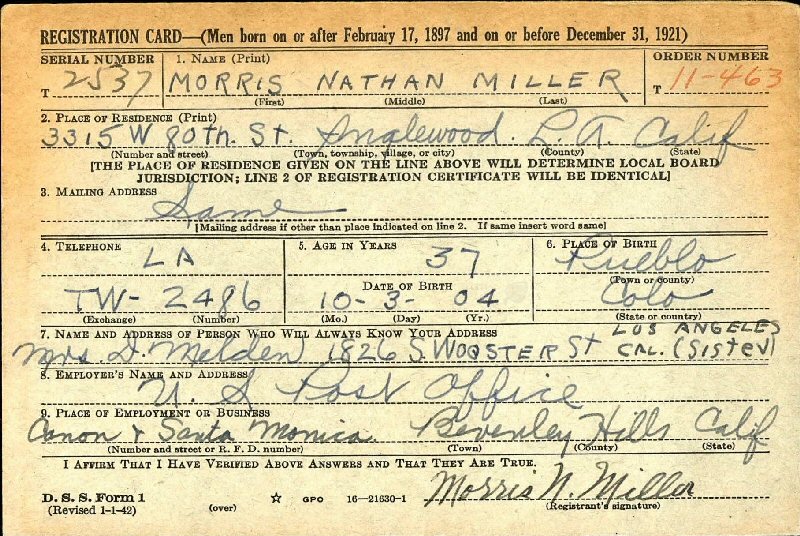 REGISTRATION CARD—(Men born on or after February 17, 1897 and on or before December 31, 1921)
SERIAL NUMBER 1. NAME (Print) ORDER NUMBER
T 2537 MORRIS NATHAN MILLER T 11-463
(First) (Middle) (Last)
2. PLACE OF RESIDENCE (Print)
3315 W 80th. St. Inglewood. L. A. Calif
(Number and street) (Town, township, village, or city) (County) (State)
[THE PLACE OF RESIDENCE GIVEN ON THE LINE ABOVE WILL DETERMINE LOCAL BOARD
JURISDICTION; LINE 2 OF REGISTRATION CERTIFICATE WILL BE IDENTICAL]
3. MAILING ADDRESS
Same
[Mailing address if other than place indicated on line 2. If same insert word same]
4. TELEPHONE 5. AGE IN YEARS 6. PLACE OF BIRTH
LA 37 Pueblo
(Town or county)
DATE OF BIRTH
TW- 2486 10-3-04 Colo
(Exchange) (Number) (Mo.) (Day) (Yr.) (State or country)
7. NAME AND ADDRESS OF PERSON WHO WILL ALWAYS KNOW YOUR ADDRESS LOS ANGELES
Mrs. D. Melden 1826 S. WOOSTER St CAL. (Sister)
8. EMPLOYER'S NAME AND ADDRESS
U. S Post Office
9. PLACE OF EMPLOYMENT OR BUSINESS
Canon & Santa Monica. Beverley Hills Calif
(Number and street or R. F. D. number) (Town) (County) (State)
I AFFIRM THAT I HAVE VERIFIED ABOVE ANSWERS AND THAT THEY ARE TRUE.
D. S. S. Form 1 GPO 16—21630-1 Morris N. Miller
(Revised 1-1-42) (over) (Registrant's signature)